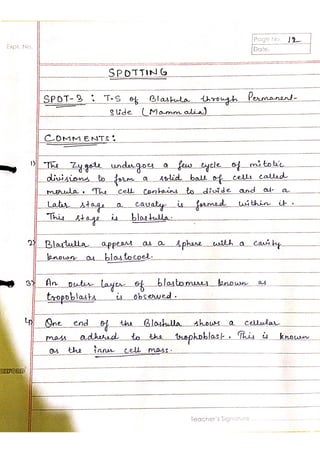 Page No. 12
Expt. No.
Date.
SPOTTING
SPOT-3 : T.S of Blastula through Permanent-
Slide (Mammalia)
COMMENTS:
1) The Zygote undergoes a few cycle of mitotic
divisions to form a solid ball of cells called
morula. The cell contains to divide and at a
later stage a cavaty is formed within it.
This stage is blastulla.
2) Blastulla appears as a sphere with a cavity
known as blastocoel.
3) An outer layer of blastomeres known as
tropoblasts is observed.
4) One end of the Blastulla shows a cellular
mass adhered to the trophoblast. This is known
as the inner cell mass.
OXFORD
Teacher's Signature